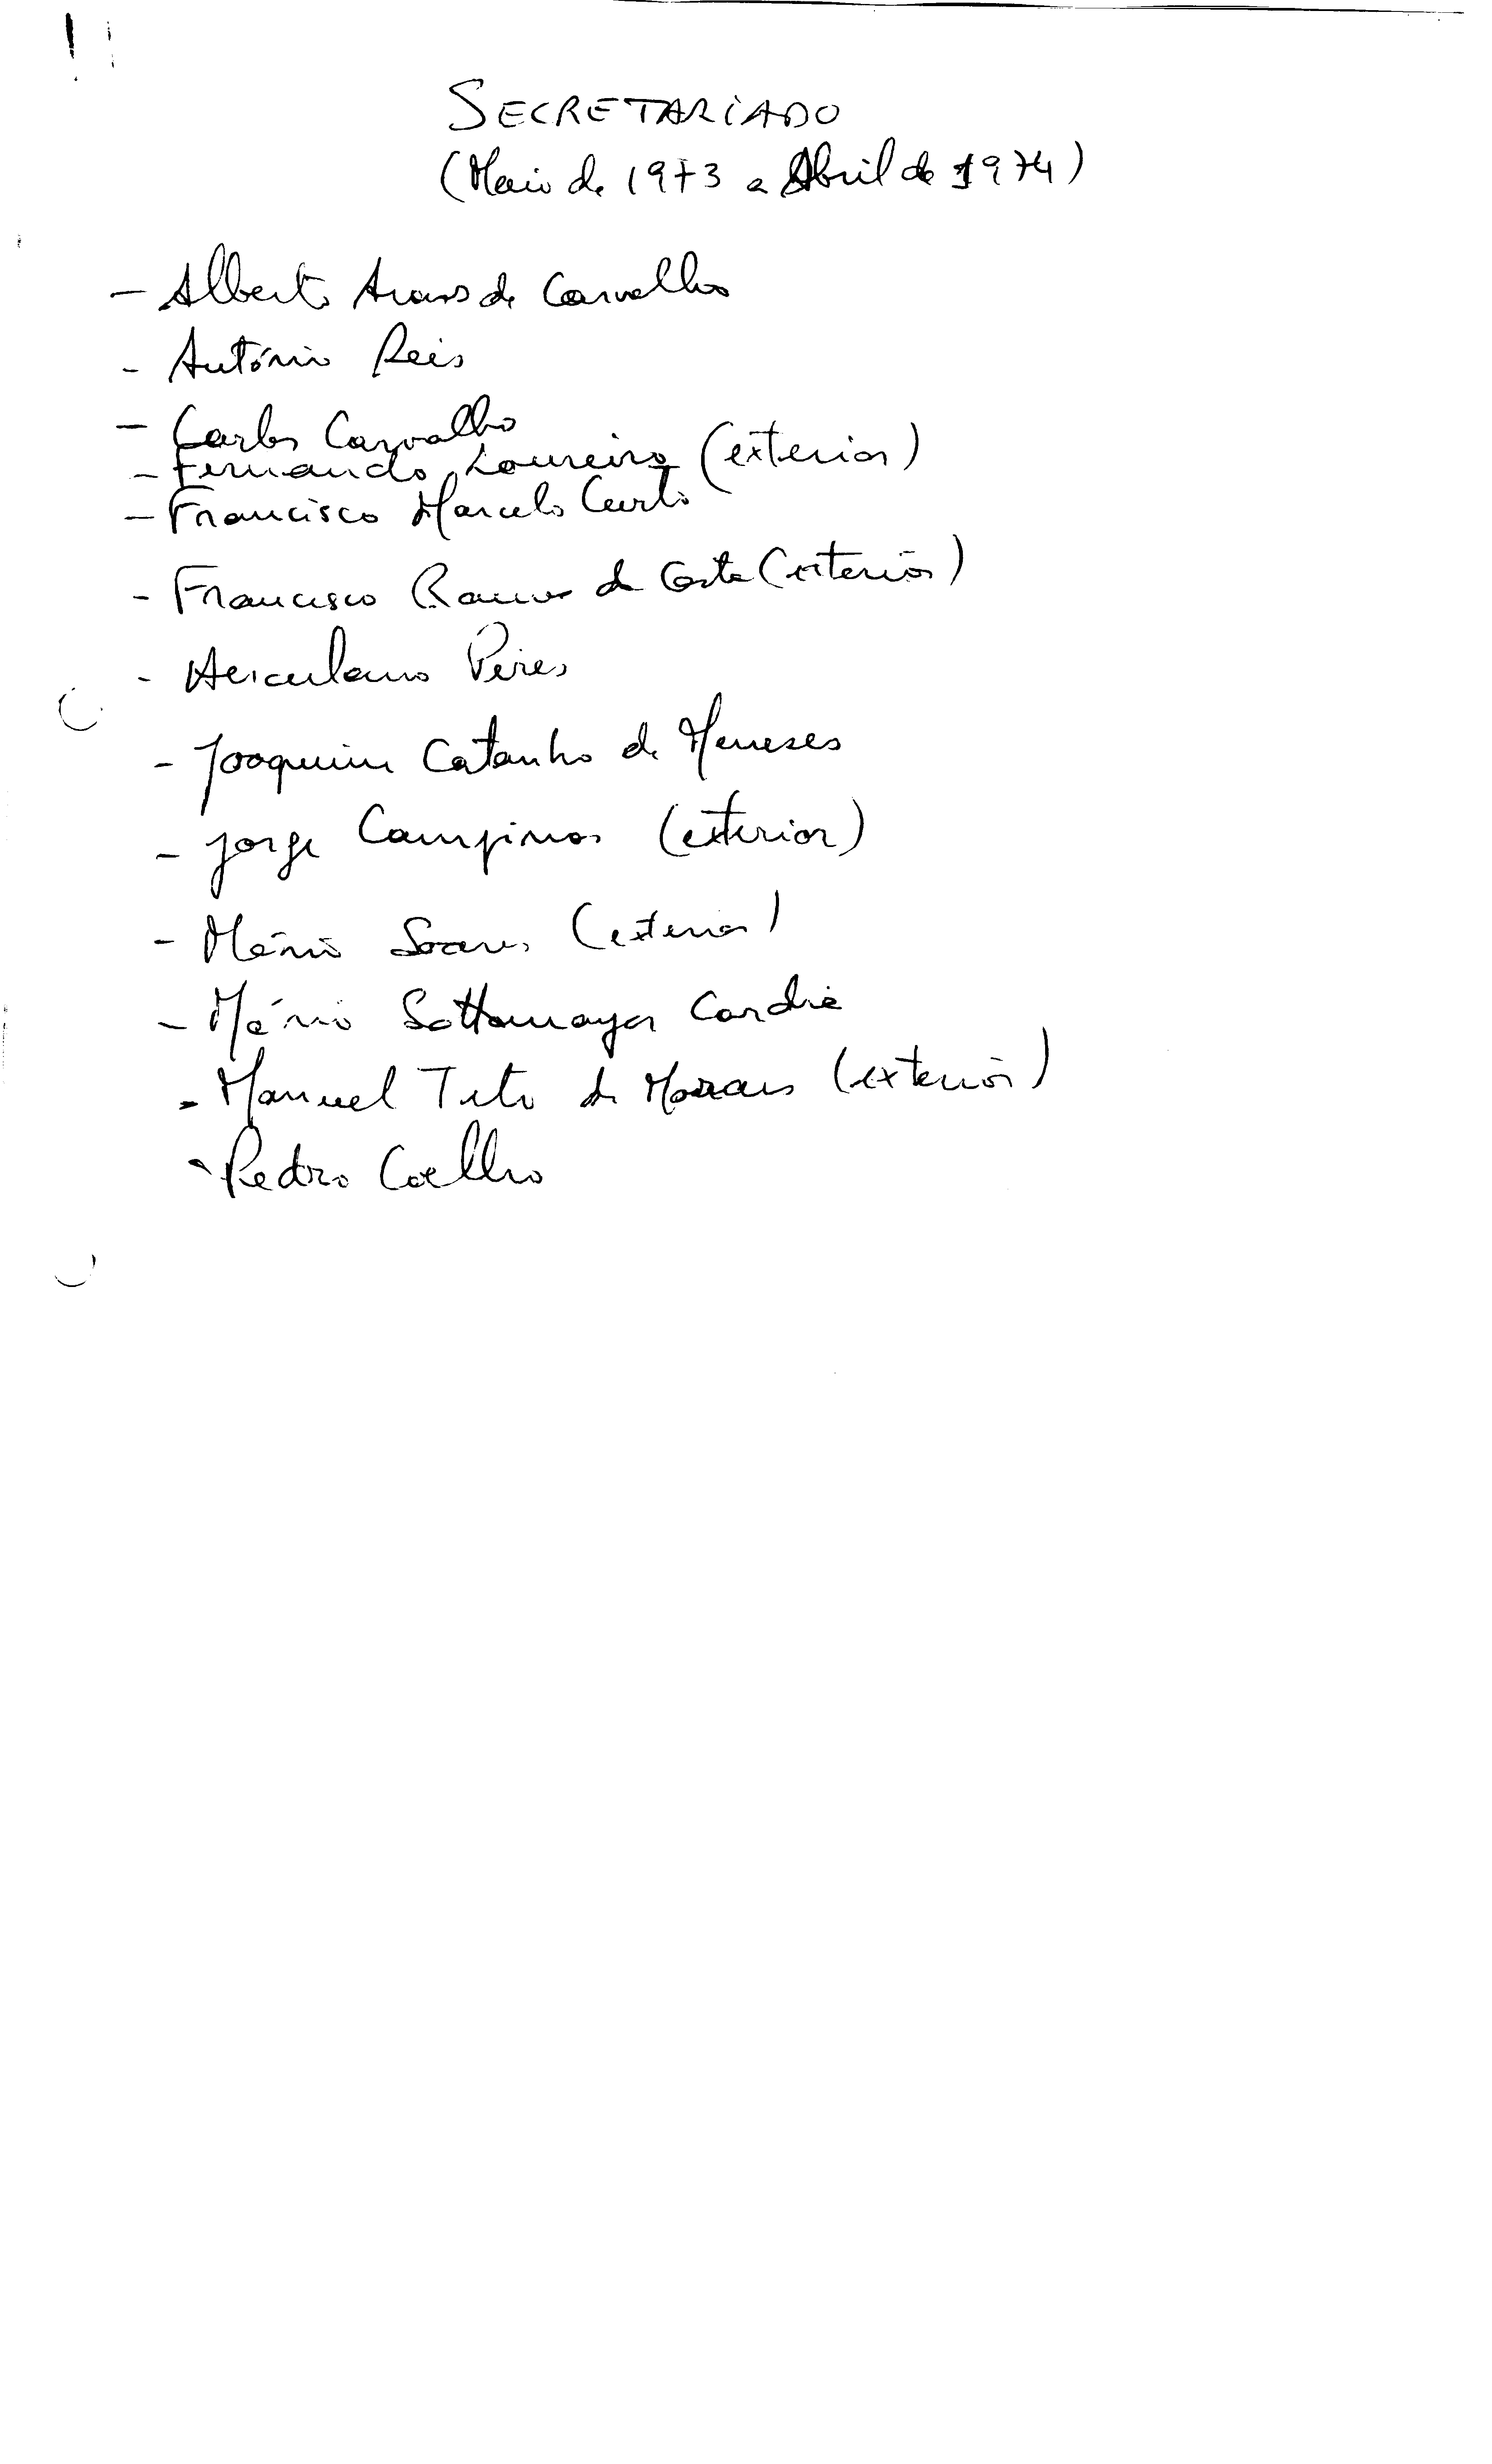 SECRETARIADO
(Maio de 1973 a Abril de 1974)
- Alberto Arons de Carvalho
- António Reis
- Carlos Carvalho
- Fernando Loureiro (exterior)
- Francisco Marcelo Curto
- Francisco Ramos da Costa (exterior)
- Herculano Pires
- Joaquim Catanho de Meneses
- Jorge Campinos (exterior)
- Mário Soares (exterior)
- Mário Sottomayor Cardia
- Manuel Tito de Morais (exterior)
- Pedro Coelho